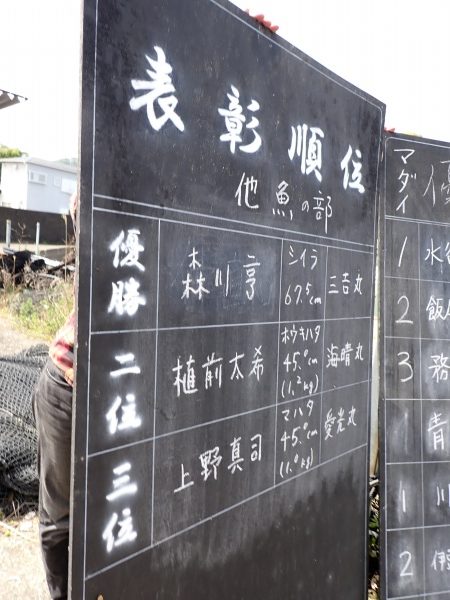 表彰順位
他魚の部
優勝 森川亨 シイラ 67.5cm 三吉丸
二位 植前太希 ホウキハタ 45.0cm (1.2kg) 海晴丸
三位 上野真司 マハタ 45.0cm (1.0kg) 愛光丸
マダイ 優
1 水
2 飯
3 務
1 青
1 川
2 伊